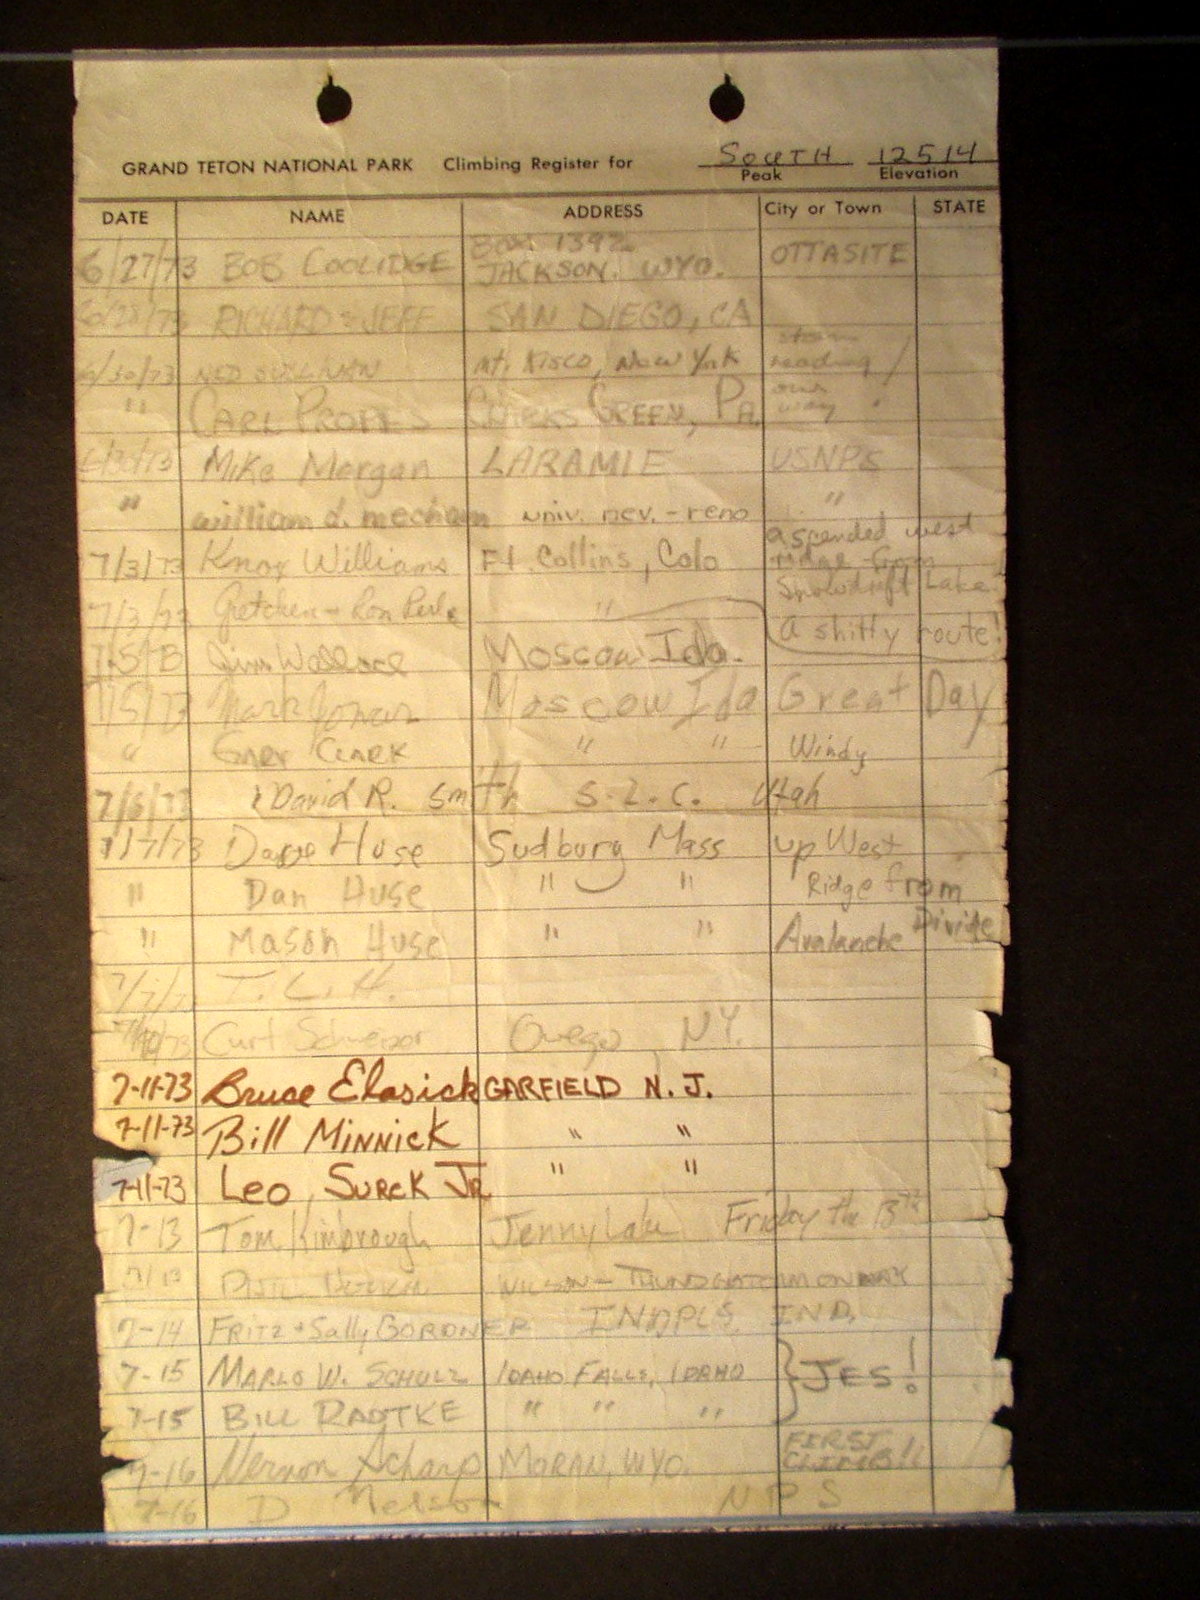 GRAND TETON NATIONAL PARK Climbing Register for SOUTH 12514
Peak Elevation
DATE NAME ADDRESS City or Town STATE
BOX 1392
6/27/73 BOB COOLIDGE JACKSON, WYO. OTTASITE
6/28/73 RICHARD & JEFF SAN DIEGO, CA
6/30/73 NED SULLIVAN Mt. Kisco, New York
" CARL PROPES CLARKS GREEN, PA.
6/30/73 Mike Morgan LARAMIE USNPS
" william d. mecham univ. nev. - reno "
7/3/73 Knox Williams Ft. Collins, Colo ascended west
ridge from
Snowdrift Lake.
7/3/73 Gretchen - Ron "
a shitty route!
7/5/73 Jim Wallace Moscow Ida.
7/5/73 Mark Moscow Ida Great Day
" Clark " " Windy
7/6/73 David R. Smith S.L.C. Utah
7/7/73 Dave Huse Sudbury Mass up West
" Dan Huse " " Ridge from
" Mason Huse " " Avalanche Divide
7/7/7 T. L. H.
Curt Owego, N.Y.
7-11-73 Bruce Elasick GARFIELD N. J.
7-11-73 Bill MINNICK " "
7-11-73 Leo SURCK JR " "
7-13 Tom Kimbrough Jenny Lake Friday the 13th
7/13 WILSON - THUNDERSTORM ON WAY
7-14 FRITZ + Sally BORDNER INDPLS, IND.
7-15 MARLO W. SCHULZ IDAHO FALLS, IDAHO JES!
7-15 BILL RADTKE " " "
7-16 Vernon Scharp MORAN, WYO. FIRST
CLIMB!!
7-16 D Nelson NPS